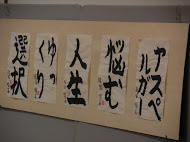 アスペ
ルガー
悩む
人生
ゆっ
くり
選択